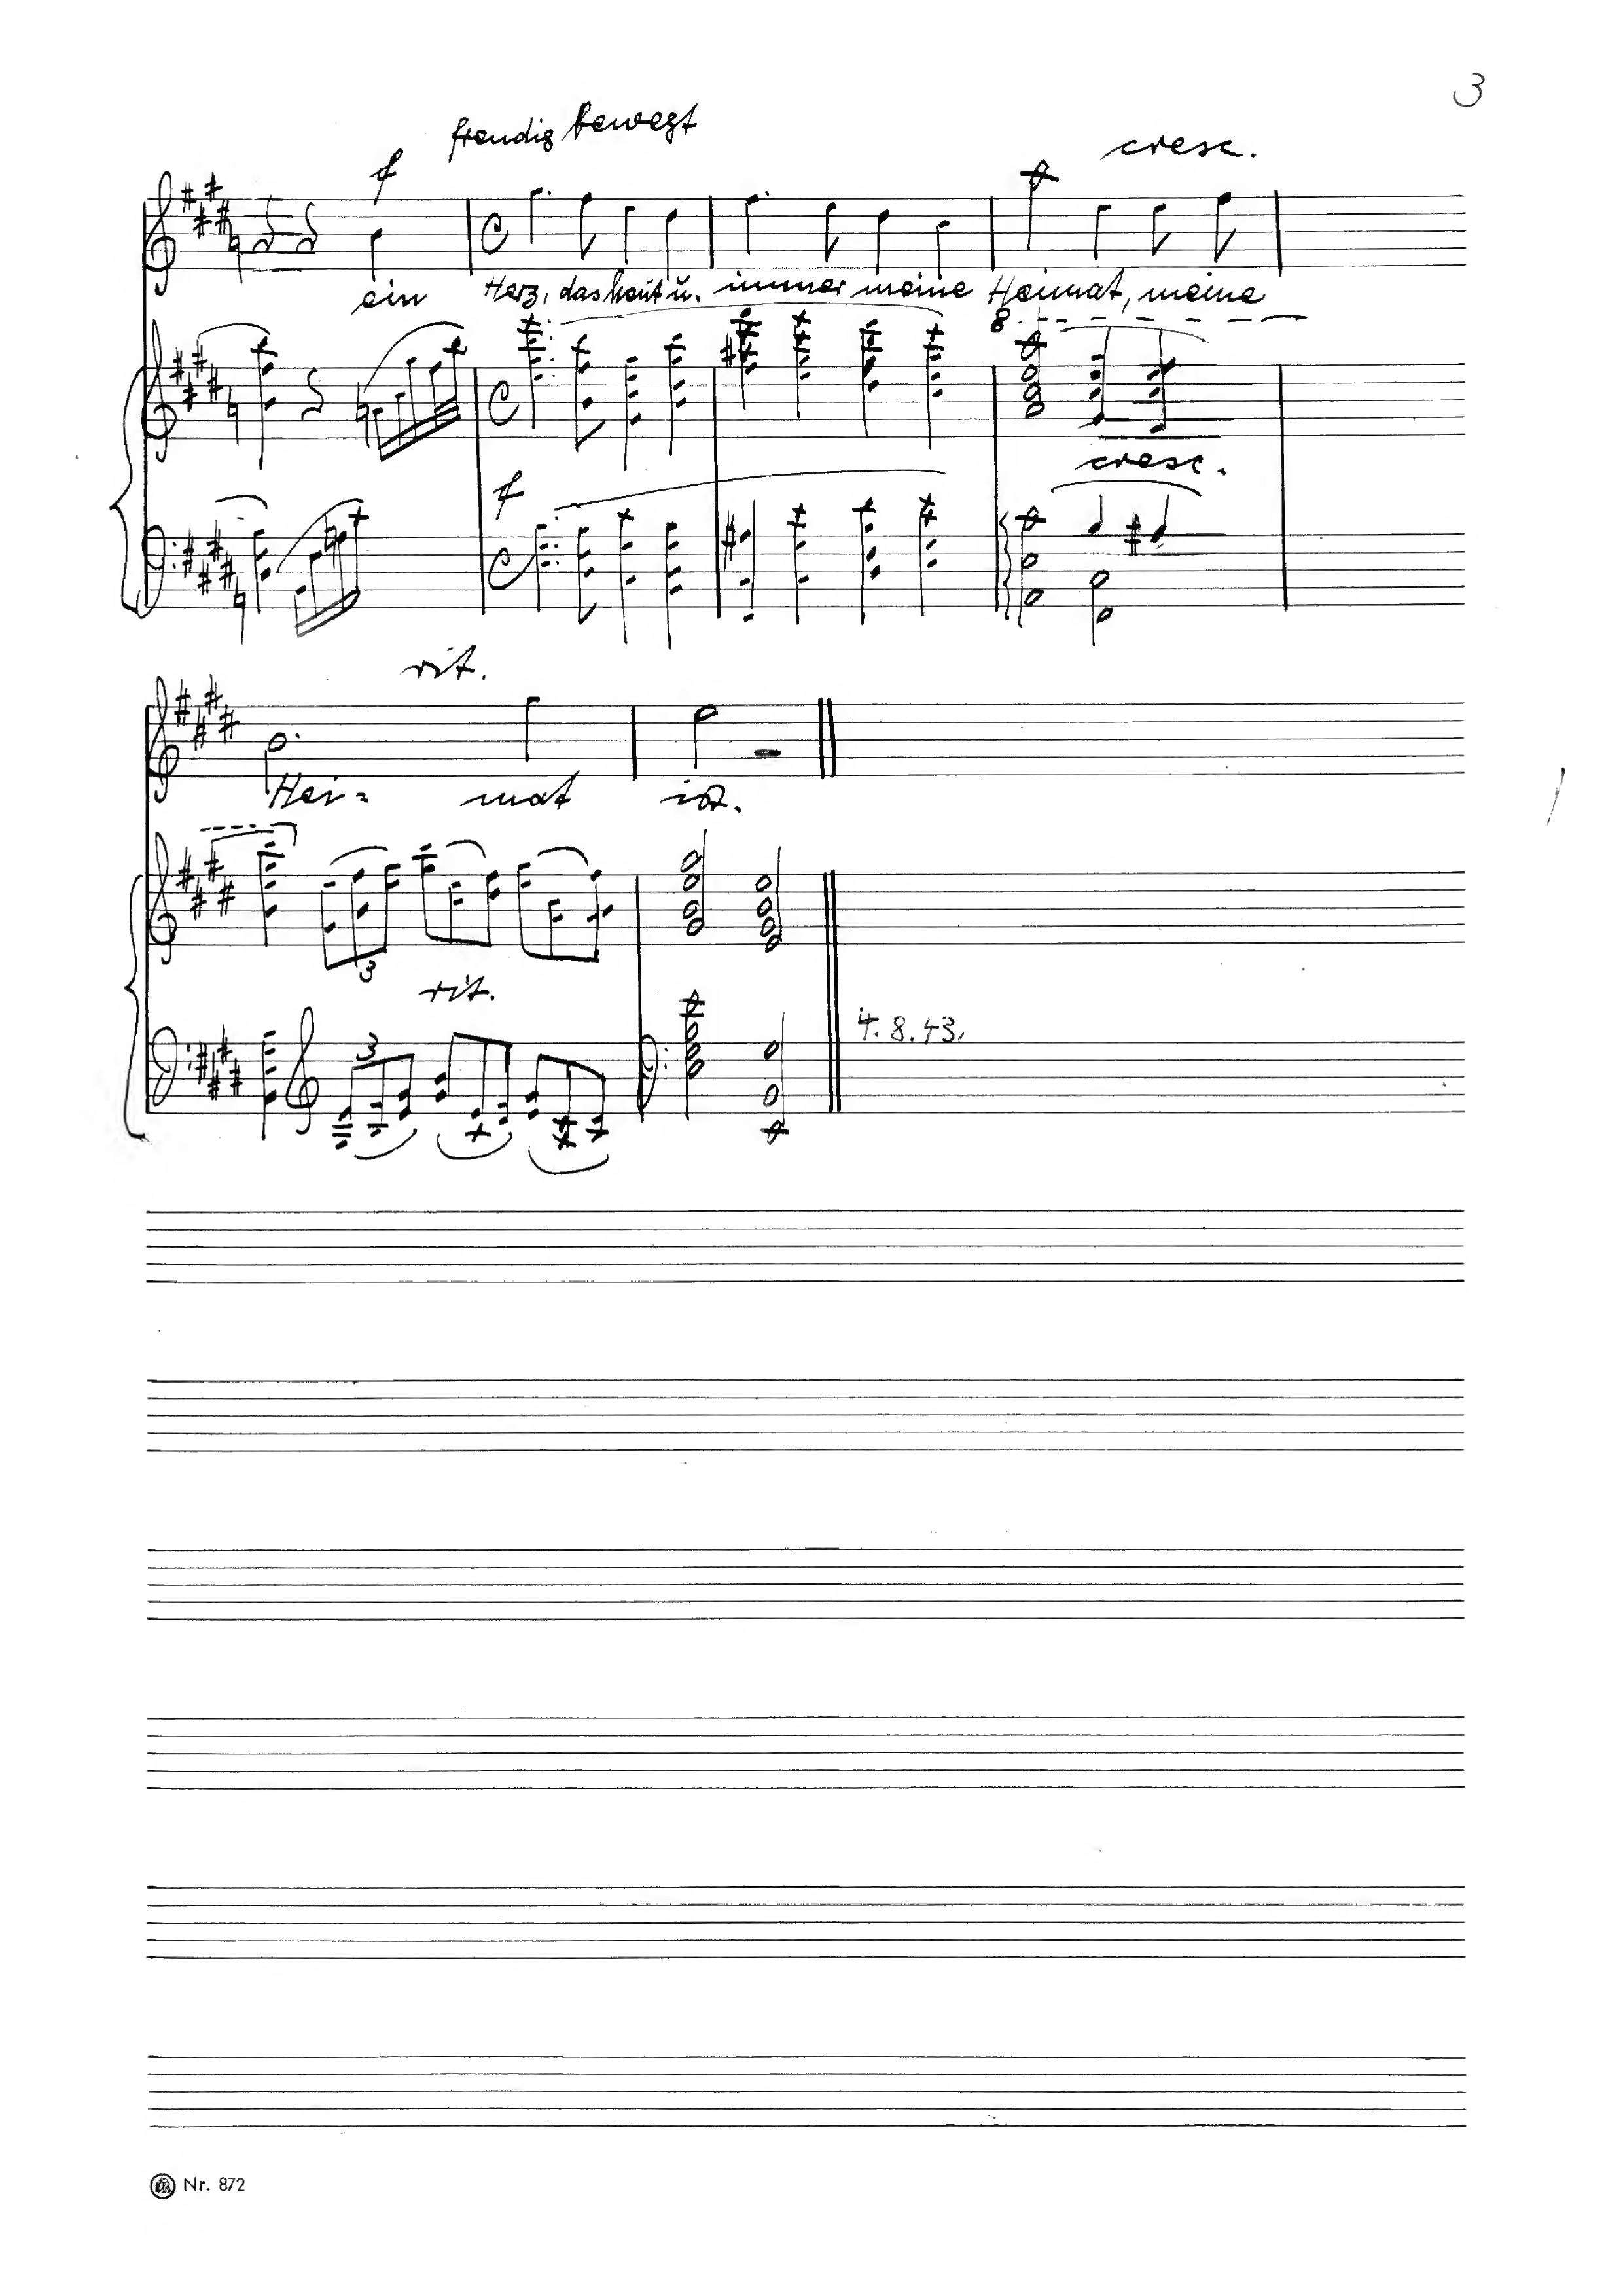 3
freudig bewegt
f
cresc.
ein Herz, das heut u. immer meine Heimat, meine
8
cresc.
f
rit.
Hei= mat ist.
3
rit.
3
4. 8. 43.
Nr. 872